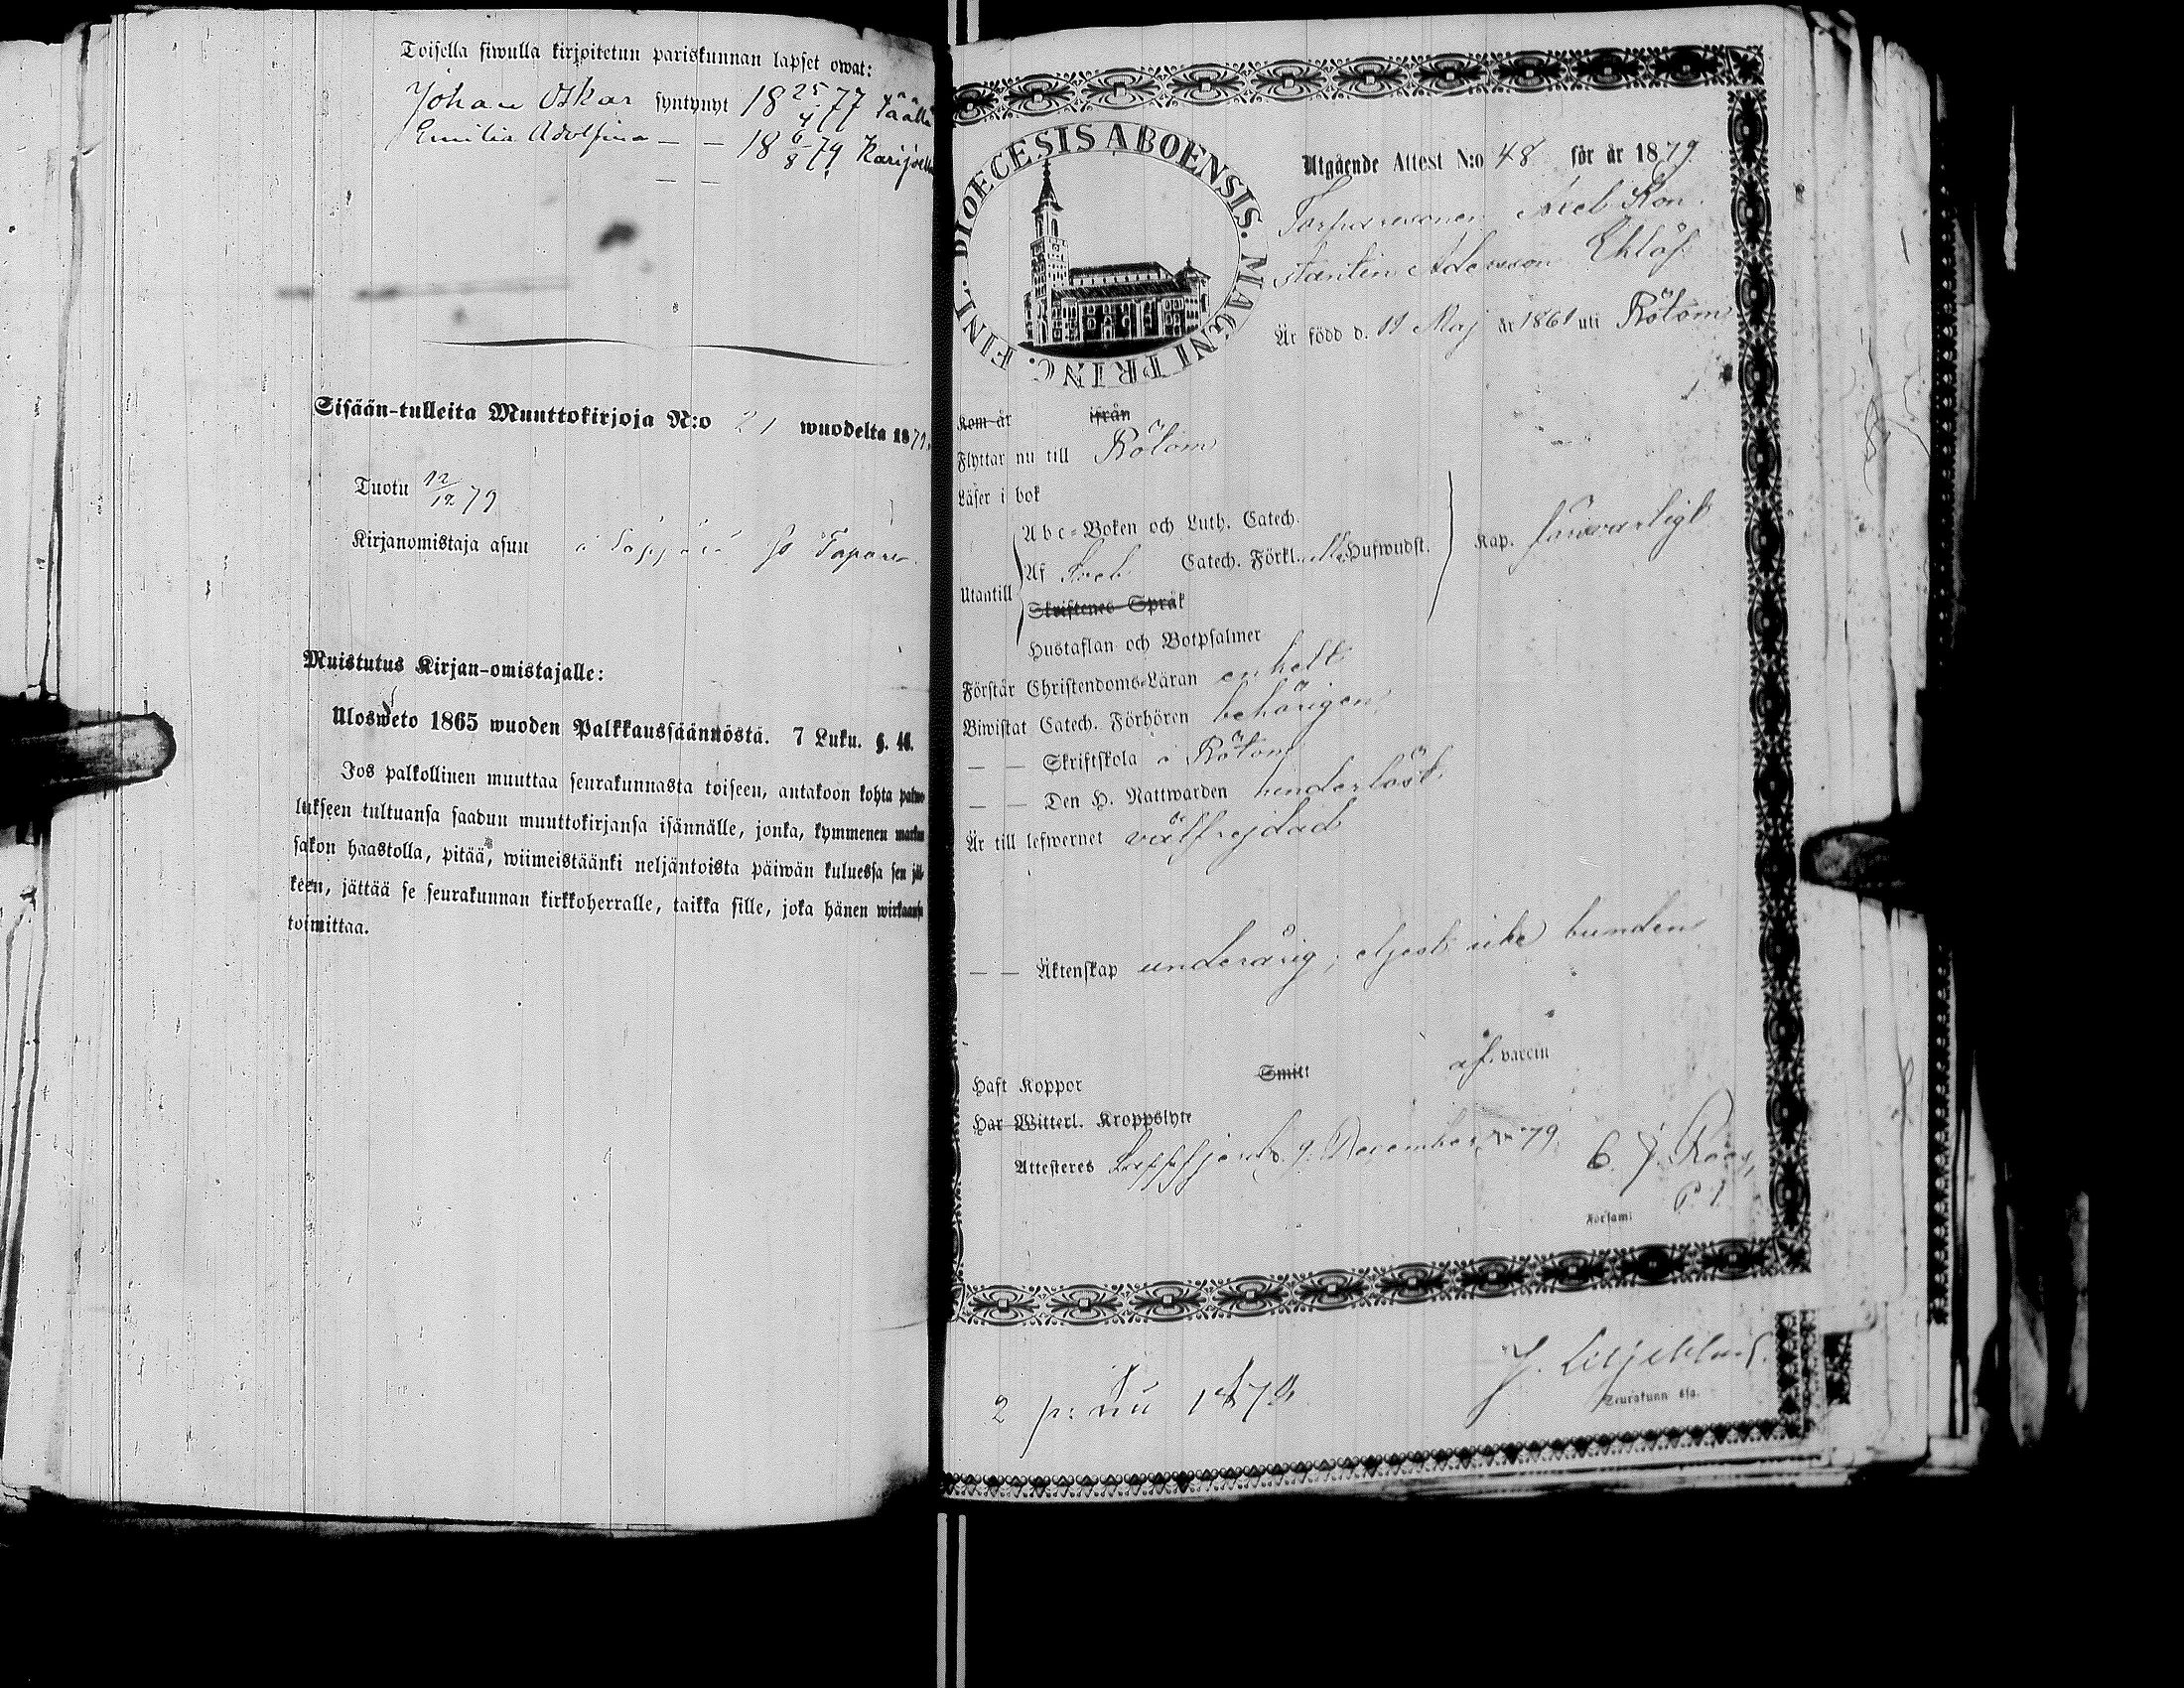 Toisella siwulla kirjoitetun pariskunnan lapset owat:
Johan Oskar syntynyt 18 25/4 77 täällä
Emilia Adolfina — — 18 6/8 79 Karijoella
— —
Sisään-tulleita Muuttokirjoja N:o 21 wuodelta 1879.
Tuotu 12/12 79
Kirjanomistaja asuu
Muistutus Kirjan-omistajalle:
Ulosweto 1865 wuoden Palkkaussäännöstä. 7 Luku. §. 46.
Jos palkollinen muuttaa seurakunnasta toiseen, antakoon kohta palwe-
lukseen tultuansa saadun muuttokirjansa isännälle, jonka, kymmenen markan
sakon haastolla, pitää, wiimeistäänki neljäntoista päiwän kuluessa sen jäl-
keen, jättää se seurakunnan kirkkoherralle, taikka sille, joka hänen wirkaansa
toimittaa.
DIOECESIS ABOENSIS. MAGNI PRINC. FINL.
Utgående Attest N:o 48 för år 1879
Torparesonen Axel Kon-
stantin Adamsson Eklöf
Är född d. 11 Maj år 1861 uti Rötom
Kom år ifrån
Flyttar nu till Rötom
Läser i bok
Abc-Boken och Luth. Catech.
Af Sveb. Catech. Förkl. Hufwudst.
Kap. försvarligt
Utantill
Skriftenes Språk
Hustaflan och Botpsalmer
Förstår Christendoms-Läran enkelt
Biwistat Catech. Förhören behörigen
— — Skriftskola i Rötom
— — Den H. Nattwarden hinderlöst
Är till lefwernet välfrejdad
— — Äktenskap underårig, eljest icke bunden
Haft Koppor Smitt af vaccin
Har Witterl. Kroppslyte
Attesteres Lappfjerd d. 9 December 1879.
C. J. Roos,
Församl.
2 p: nu 1878
J. Liljeblad.
Seurakunn ssa.